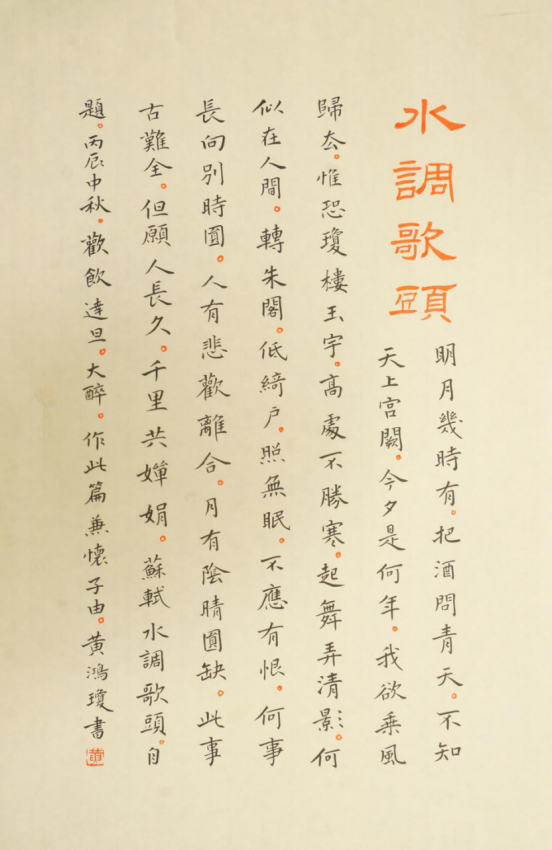 水調歌頭
明月幾時有。把酒問青天。不知
天上宮闕。今夕是何年。我欲乘風
歸去。惟恐瓊樓玉宇。高處不勝寒。起舞弄清影。何
似在人間。轉朱閣。低綺户。照無眠。不應有恨。何事
長向別時圓。人有悲歡離合。月有陰晴圓缺。此事
古難全。但願人長久。千里共嬋娟。蘇軾水調歌頭。自
題。丙辰中秋。歡飲達旦。大醉。作此篇兼懷子由。黃鴻瓊書